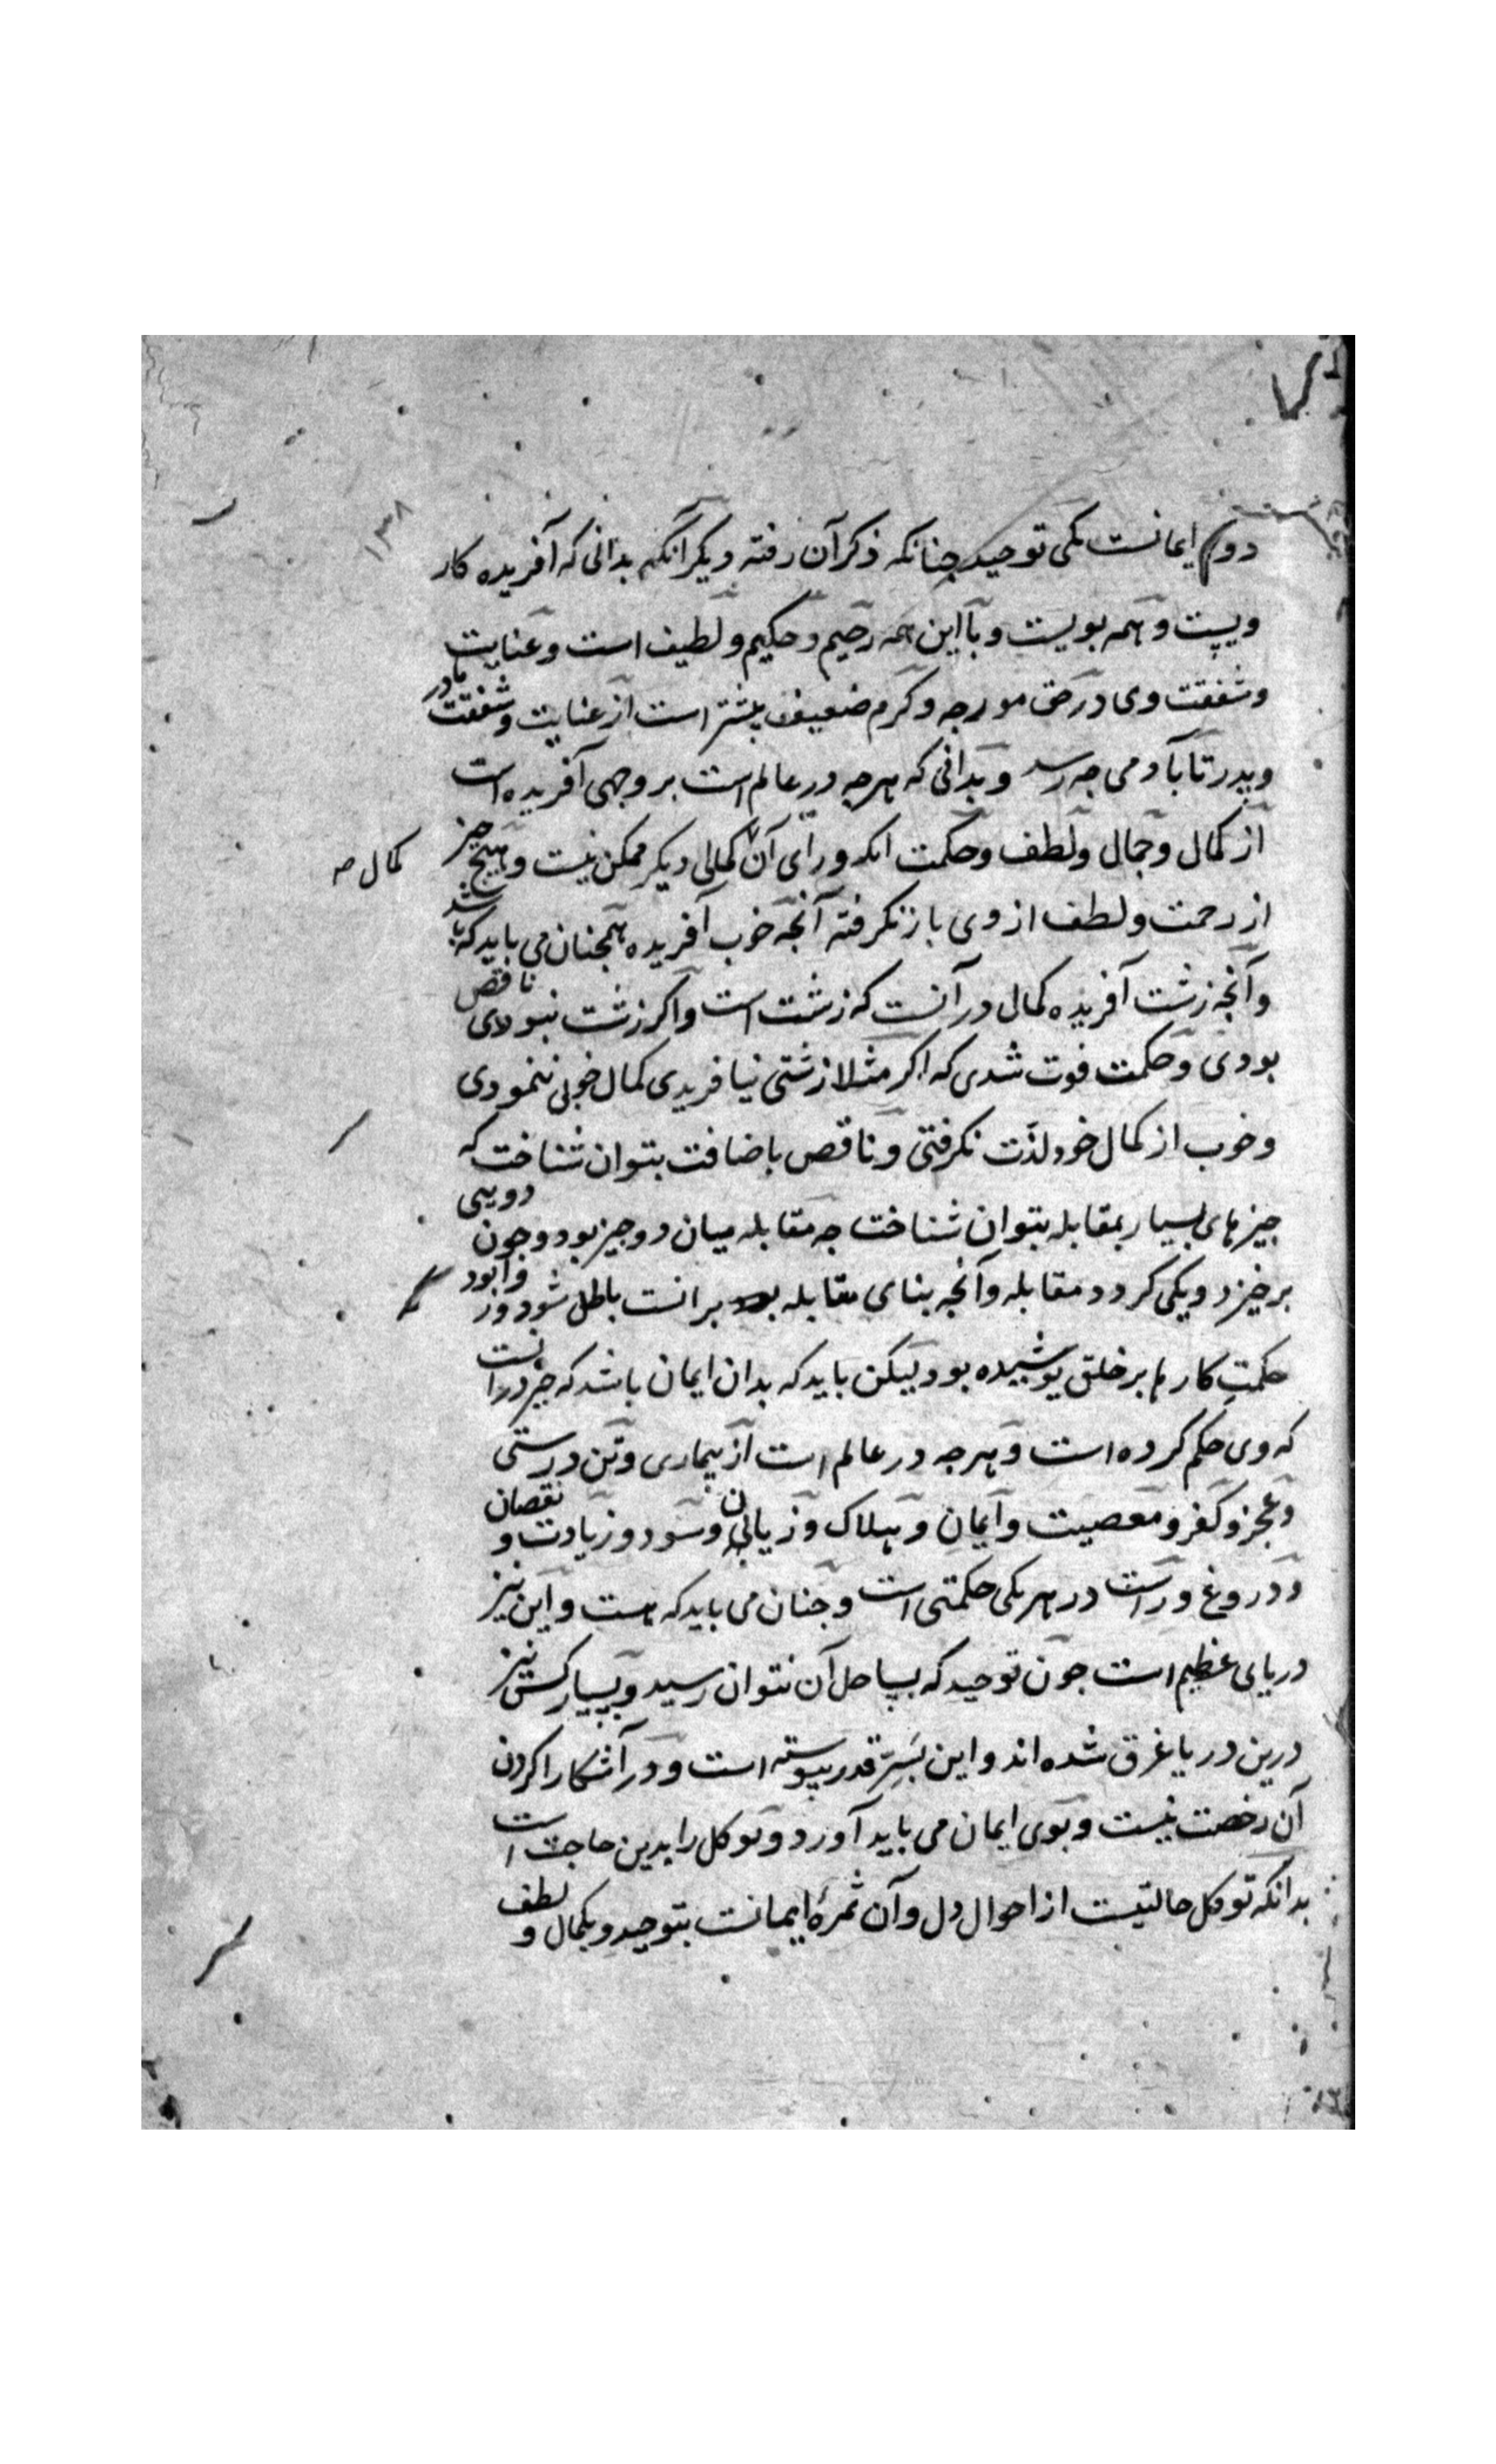 ۱۳۸
دوم ایمانست یکی توحید چنانکه ذکر آن رفته دیکر آنکه بدانی که آفریده کار
ویست و همه بویست و با این همه رحیم و حکیم و لطیف است و عنایت
و شفقت وی در حق مورجه و کرم ضعیف بیشتر است از عنایت و شفقت مادر
و پدر تا بآدمی جه رسد و بدانی که هرجه در عالم است بر وجهی آفریده است
از کمال و جمال و لطف و حکمت انکه ورای آن کمالی دیکر ممکن نیست و هیچ چیز
کمال صه
از رحمت و لطف از وی باز نکرفته آنچه خوب آفریده همجنان می باید که باشد
و آنچه زشت آفریده کمال در آنست که زشت است و اکر زشت نبودی ناقص
بودی و حکمت فوت شدی که اکر مثلا زشتی نیافریدی کمال خوبی ننمودی
و خوب از کمال خود لذت نکرفتی و ناقص باضافت بتوان شناخت که
جیزهای بسیار بمقابله بتوان شناخت جه مقابله میان دو جیز بود و جون دویی
برخیزد و یکی کردد مقابله و آنچه بنای مقابله برانست باطل شود و روا بود
حکمت کارها بر خلق پوشیده بود لیکن باید که بدان ایمان باشد که خیر درانست
که وی حکم کرده است و هرجه در عالم است از بیماری و تن درستی
و عجز و کفر و معصیت و ایمان و هلاک و زیان و سود و زیادت و نقصان
و دروغ و راست در هر یکی حکمتی است و جنان می باید که هست و این نیز
دریای عظیم است جون توحید که بساحل آن نتوان رسید و بسیار کس نیز
درین دریا غرق شده اند و این بسر قدر پیوسته است و در آشکارا کردن
آن رخصت نیست و بوی ایمان می باید آورد و توکل را بدین حاجت است
بدانکه توکل حالتیست از احوال دل و آن ثمره ایمانست بتوحید و بکمال و لطف